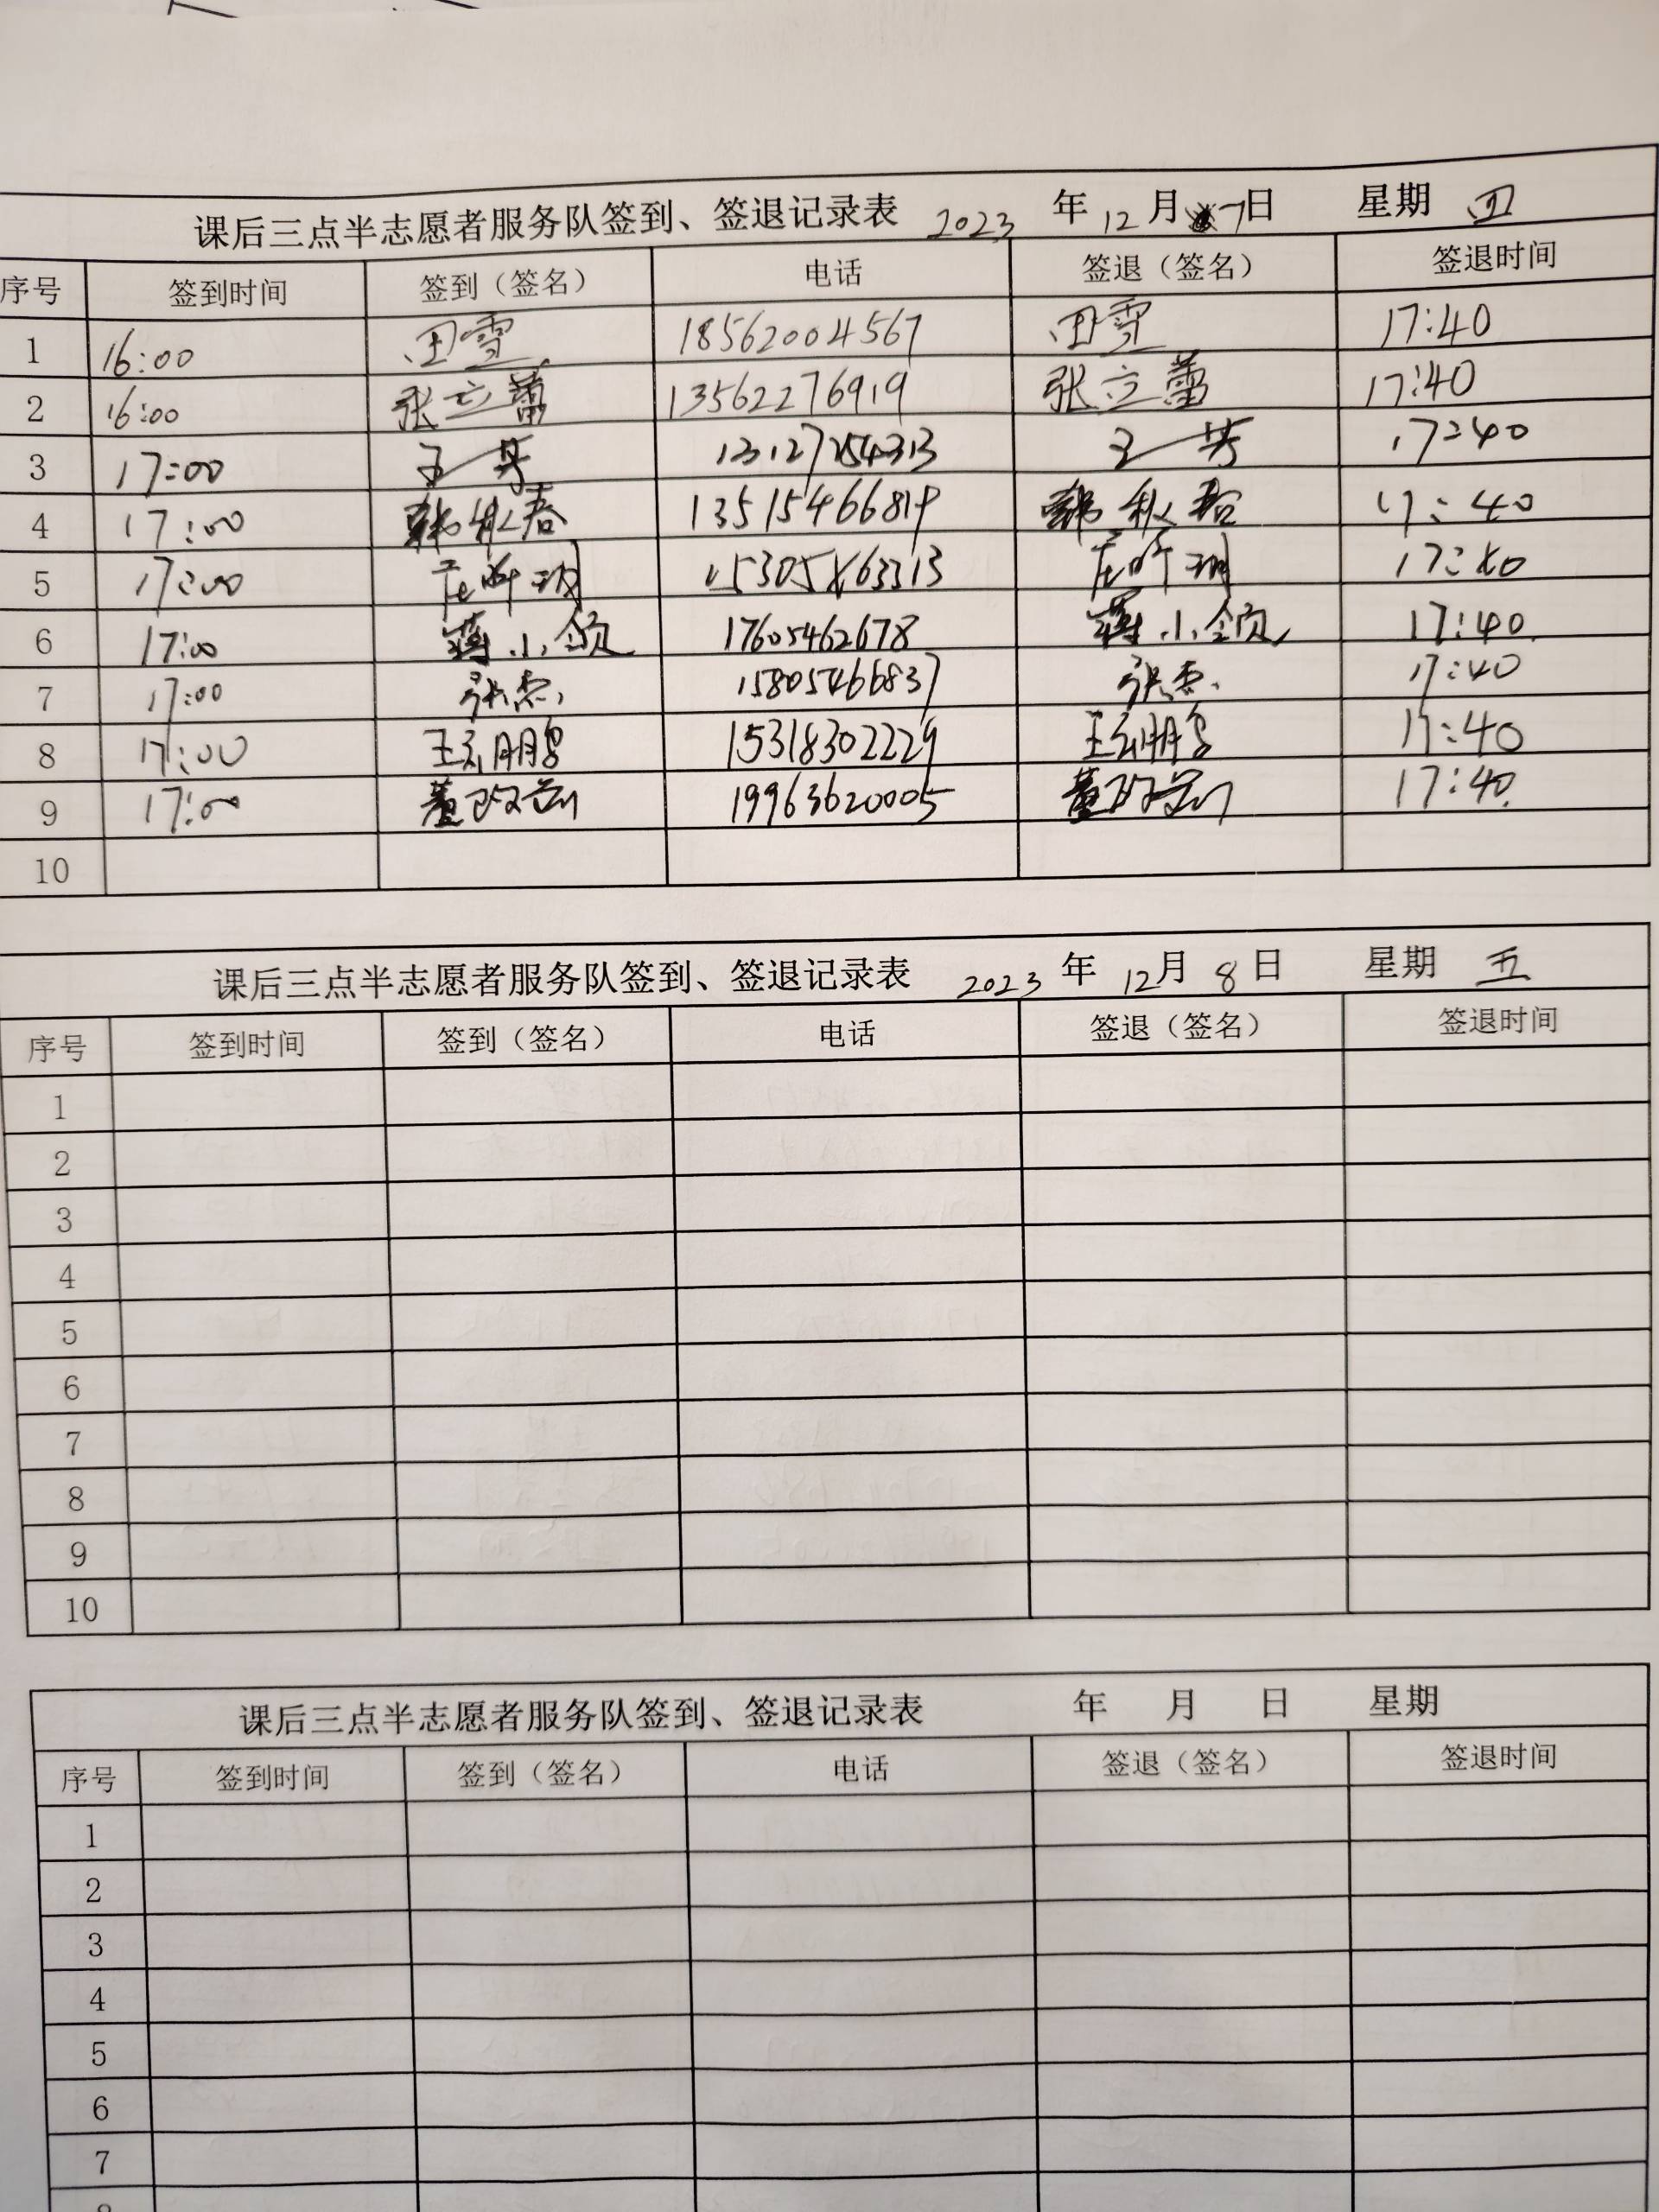 课后三点半志愿者服务队签到、签退记录表 2023 年 12 月 7日 星期 四
序号 签到时间 签到（签名） 电话 签退（签名） 签退时间
1 16:00 田雪 18562004567 田雪 17:40
2 16:00 张立蕾 13562276919 张立蕾 17:40
3 17:00 13127254313 17:40
4 17:00 韩秋春 13515466819 韩秋春 17:40
5 17:00 17:40
6 17:00 蒋小颌 17605462678 蒋小颌 17:40
7 17:00 张杰 15805466837 张杰 17:40
8 17:00 王云鹏 15318302229 王云鹏 17:40
9 17:00 19963620005 17:40
10
课后三点半志愿者服务队签到、签退记录表 2023 年 12月 8 日 星期 五
序号 签到时间 签到（签名） 电话 签退（签名） 签退时间
1
2
3
4
5
6
7
8
9
10
课后三点半志愿者服务队签到、签退记录表 年 月 日 星期
序号 签到时间 签到（签名） 电话 签退（签名） 签退时间
1
2
3
4
5
6
7